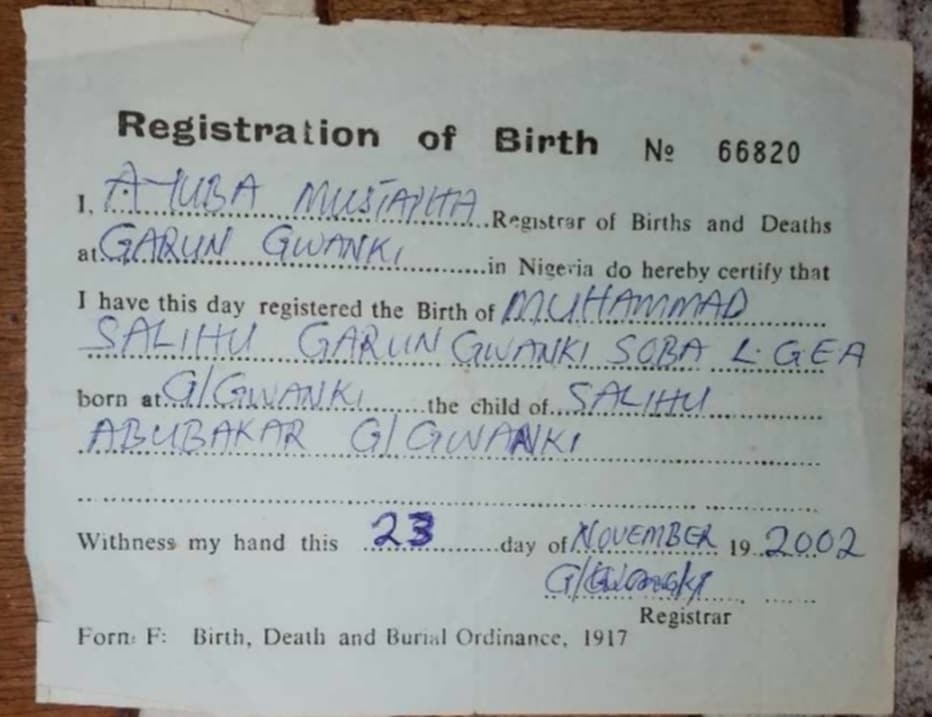 Registration of Birth № 66820
I, AYUBA MUSTAPHA Registrar of Births and Deaths
at GARUN GWANKI in Nigeria do hereby certify that
I have this day registered the Birth of MUHAMMAD
SALIHU GARUN GWANKI SOBA L.GEA
born at G/GWANKI the child of SALIHU
ABUBAKAR G/GWANKI
Withness my hand this 23 day of NOVEMBER 19 2002
G/Gwanki
Registrar
Form F: Birth, Death and Burial Ordinance, 1917